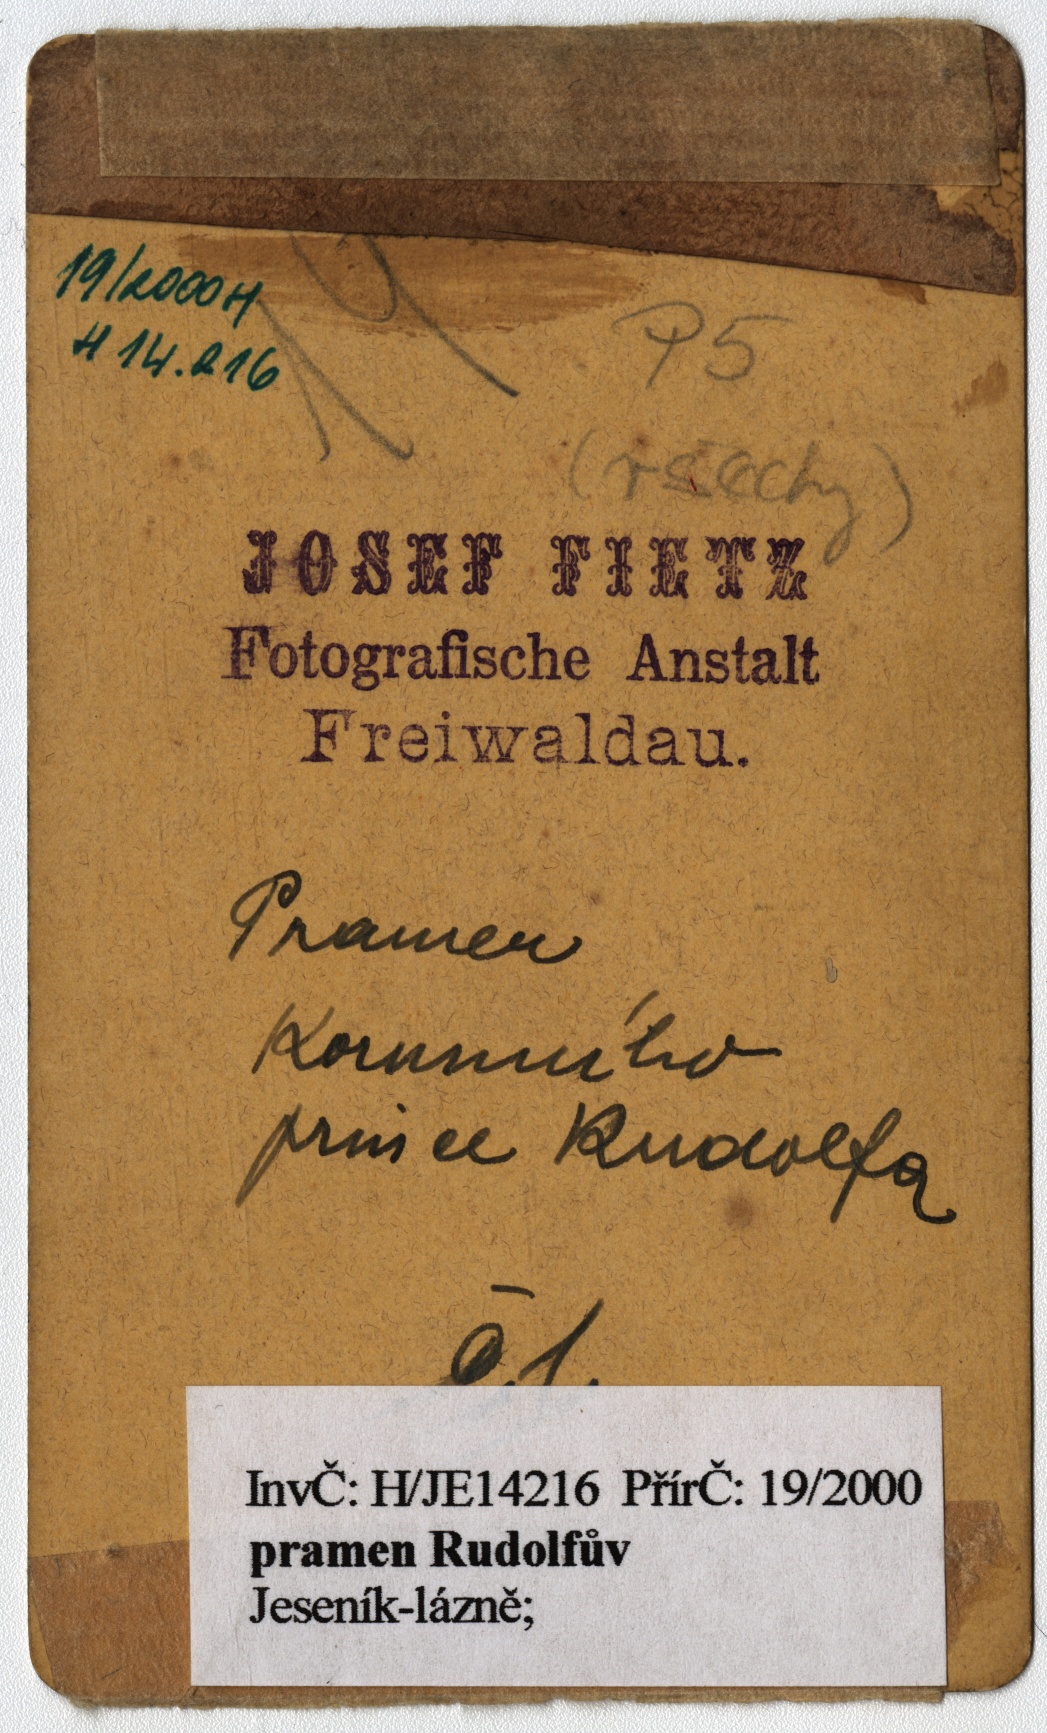 19/2000H
H 14.216
P5
(všechy)
JOSEF FIETZ
Fotografische Anstalt
Freiwaldau.
Pramen
Korunního
prince Rudolfa
InvČ: H/JE14216 PřírČ: 19/2000
pramen Rudolfův
Jeseník-lázně;